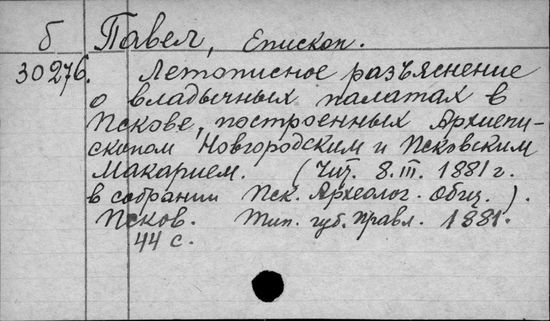 б Павел, Епископ.
30276. Летописное разъяснение
о владычных палатах в
Пскове, построенных Архиепи-
скопом Новгородским и Псковским
Макарием. (Чит. 8.III. 1881 г.
в собрании Пск. Археолог. Общ.).
Псков. Тип. губ. правл. 1881.
44 с.